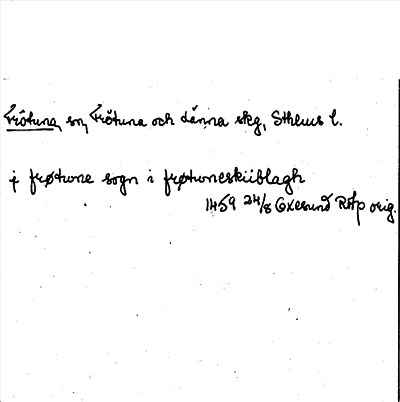 Frötuna, sn, Frötuna och Länna skg, Sthlms l.
j frøtwne sogn i frøtwneskiiblagh
1459 24/8 Exesund RAp orig.